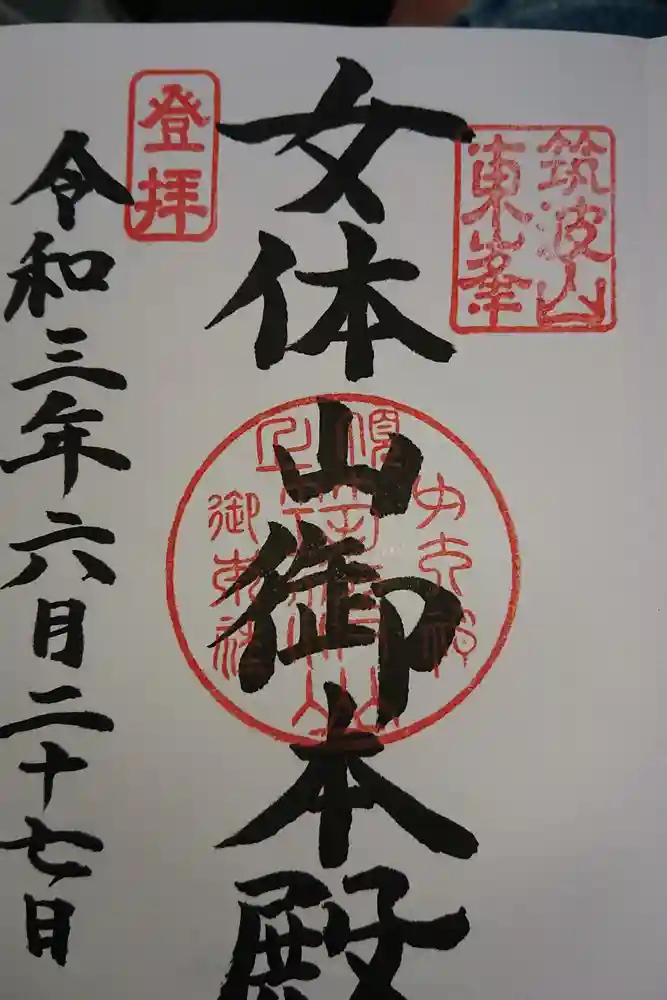 筑波山
東峯
女体山御本殿
登拝
令和三年六月二十七日